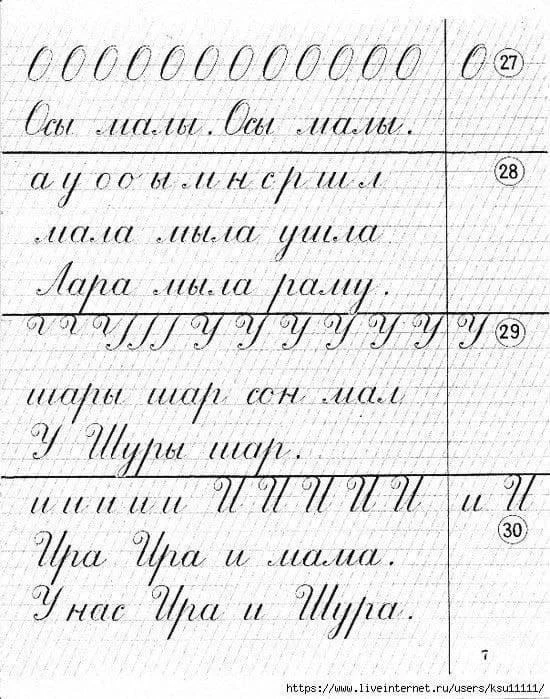 О О О О О О О О О О О О О 27
Осы малы. Осы малы.
а у о о ы м н с р ш л 28
мала мыла ушла
Лара мыла раму.
У У У У У У У 29
шары шар сон мал
У Шуры шар.
и и и и и И И И И И и И
30
Ира Ира и мама.
У нас Ира и Шура.
7
https://www.liveinternet.ru/users/ksu11111/